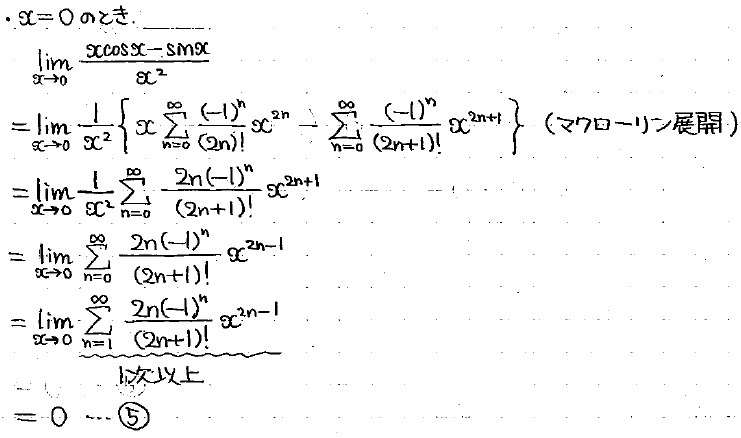 ・x=0のとき.
lim_{x→0} \frac{xcosx-sinx}{x^2}
=lim_{x→0} \frac{1}{x^2} { x \sum_{n=0}^{∞} \frac{(-1)^n}{(2n)!} x^{2n} - \sum_{n=0}^{∞} \frac{(-1)^n}{(2n+1)!} x^{2n+1} } (マクローリン展開)
=lim_{x→0} \frac{1}{x^2} \sum_{n=0}^{∞} \frac{2n(-1)^n}{(2n+1)!} x^{2n+1}
=lim_{x→0} \sum_{n=0}^{∞} \frac{2n(-1)^n}{(2n+1)!} x^{2n-1}
=lim_{x→0} \sum_{n=1}^{∞} \frac{2n(-1)^n}{(2n+1)!} x^{2n-1}
1次以上
=0 …⑤